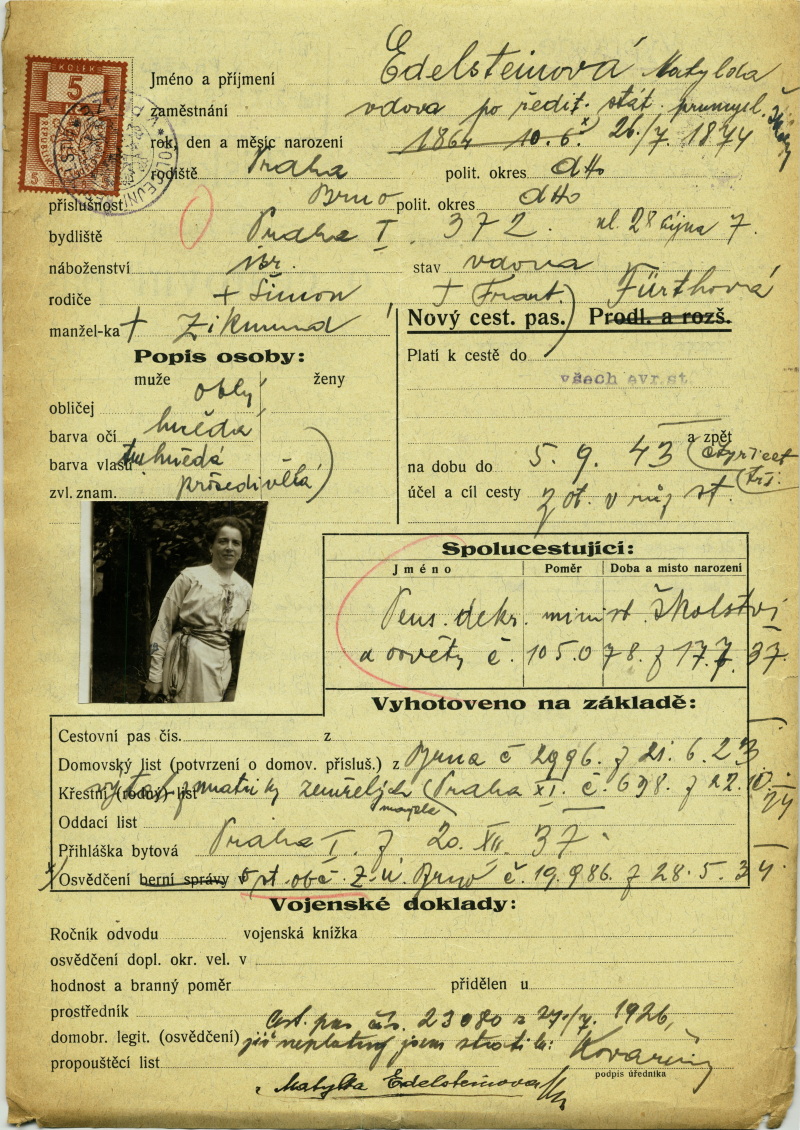 KOLEK
5
Jméno a příjmení Edelsteinová Matylda
zaměstnání vdova po ředit. stát. průmysl. školy
rok, den a měsíc narození 1864 10. 6. x 26./7. 1874
rodiště Praha polit. okres dtto
příslušnost Brno polit. okres dtto
bydliště Praha I, 372. ul. 28 října 7.
náboženství isr. stav vdova
rodiče + Šimon + Frant. Fürthová
manžel-ka + Zikmund
Nový cest. pas. Prodl. a rozš.
Popis osoby:
muže ženy
obličej oblý
barva očí hnědá
barva vlasů tmhnědá
zvl. znam. prošedivělá
Platí k cestě do
všech evr.st
a zpět
na dobu do 5. 9. 43 (čtyřicet tři.
účel a cíl cesty zot. v růz st.
Spolucestující:
Jméno Poměr Doba a místo narození
Pens. dekr. minist. školství
a osvěty č. 105.078. z 17.7. 37.
Vyhotoveno na základě:
Cestovní pas čís. z
Domovský list (potvrzení o domov. přísluš.) z Brna č 2996. z 21. 6. 23.
Křestní (rodný) list z matriky zemřelých Praha XI. č. 698. z 22. 10. 24
manžela
Oddací list
Přihláška bytová Praha I. z 20. XII. 37.
x/ Osvědčení berní správy o st. obč. z. ú. Brno č. 19.986. z 28. 5. 34
Vojenské doklady:
Ročník odvodu vojenská knížka
osvědčení dopl. okr. vel. v
hodnost a branný poměr přidělen u
prostředník cest. pas čís. 23080 z 27./7. 1926,
domobr. legit. (osvědčení) již neplatný jsem ztratila:
propouštěcí list
podpis úředníka
Matylda Edelsteinova